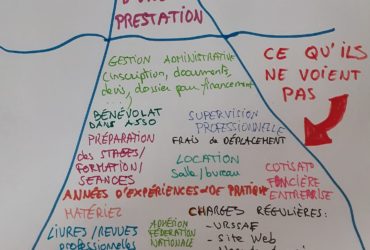 PRESTATION
GESTION ADMINISTRATIVE
(inscription, documents,
devis, dossier pour financement)
CE QU'ILS
NE VOIENT
PAS
BÉNÉVOLAT
DANS ASSO
SUPERVISION
PROFESSIONNELLE
PRÉPARATION
des STAGES/
FORMATION/
SEANCES
FRAIS de DÉPLACEMENT
LOCATION
Salle/bureau
COTISAT°
FONCIÈRE
ENTREPRISE
ANNÉES D'EXPÉRIENCES DE PRATIQUE
MATÉRIEL
CHARGES RÉGULIÈRES:
LIVRES/REVUES
professionnelles
ADHÉSION
FÉDÉRATION
NATIONALE
- URSSAF
- Site Web